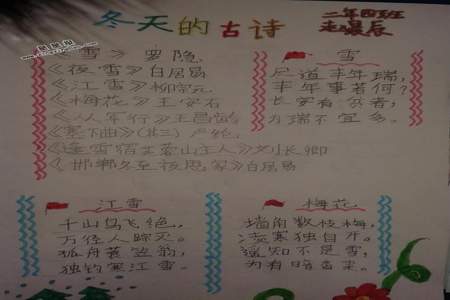 冬天的古诗
二年四班
《雪》罗隐
《夜雪》白居易
《江雪》柳宗元
《梅花》王安石
《从军行》王昌龄
《塞下曲》(其三)卢纶
《逢雪宿芙蓉山主人》刘长卿
《邯郸冬至夜思家》白居易
雪
尽道丰年瑞,
丰年事若何?
长安有贫者,
为瑞不宜多。
江雪
千山鸟飞绝,
万径人踪灭。
孤舟蓑笠翁,
独钓寒江雪。
梅花
墙角数枝梅,
凌寒独自开。
遥知不是雪,
为有暗香来。